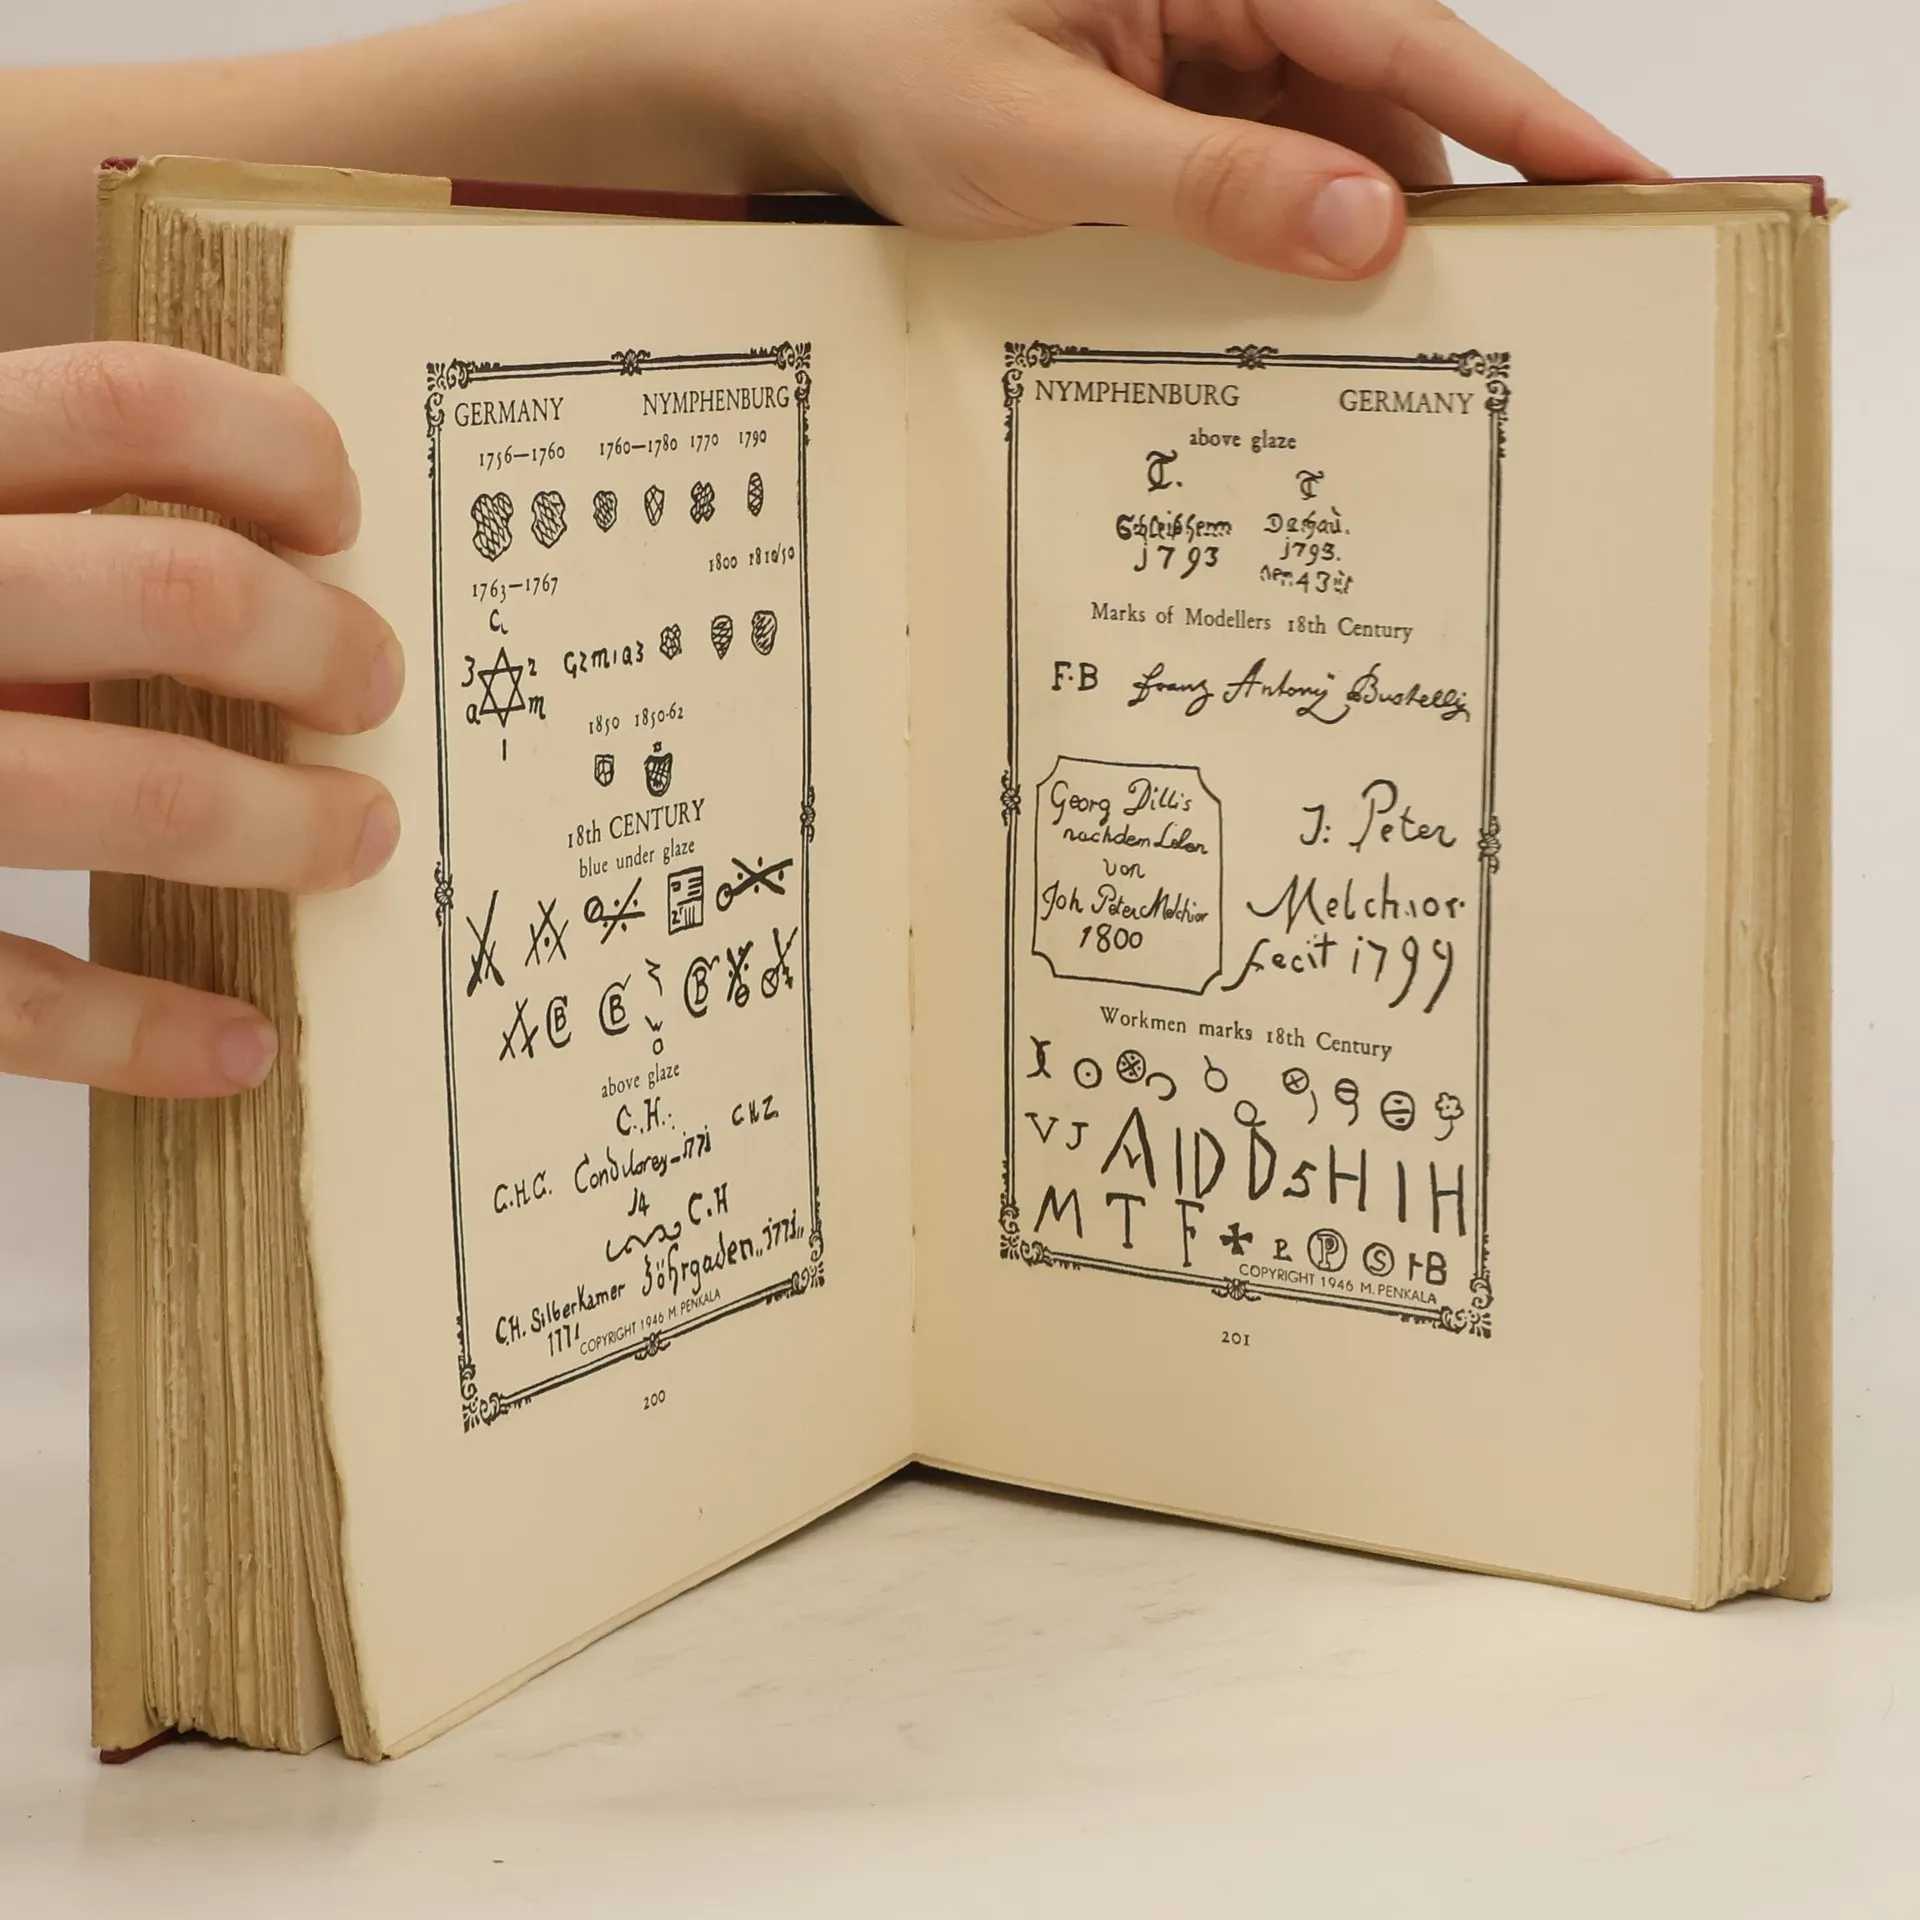 GERMANY NYMPHENBURG
1756—1760 1760—1780 1770 1790
1800 1810/50
1763—1767
C
3 2
a m
1
1850 1850-62
18th CENTURY
blue under glaze
CB CB CB
above glaze
C.H.: C H Z
C.H.C. 1771
C.H
C.H. Silberkamer Zöhrgaden„1771„
1771
COPYRIGHT 1946 M. PENKALA
200
NYMPHENBURG GERMANY
above glaze
T. T
1793 1793.
Marks of Modellers 18th Century
F·B Franz Antonÿ Bustellÿ
Georg Dillis
nachdem Leben
von
Joh Peter Melchior
1800
J: Peter
Melchior
fecit 1799
Workmen marks 18th Century
V J A I D D 5 H I H
M T F P P S
COPYRIGHT 1946 M. PENKALA
201